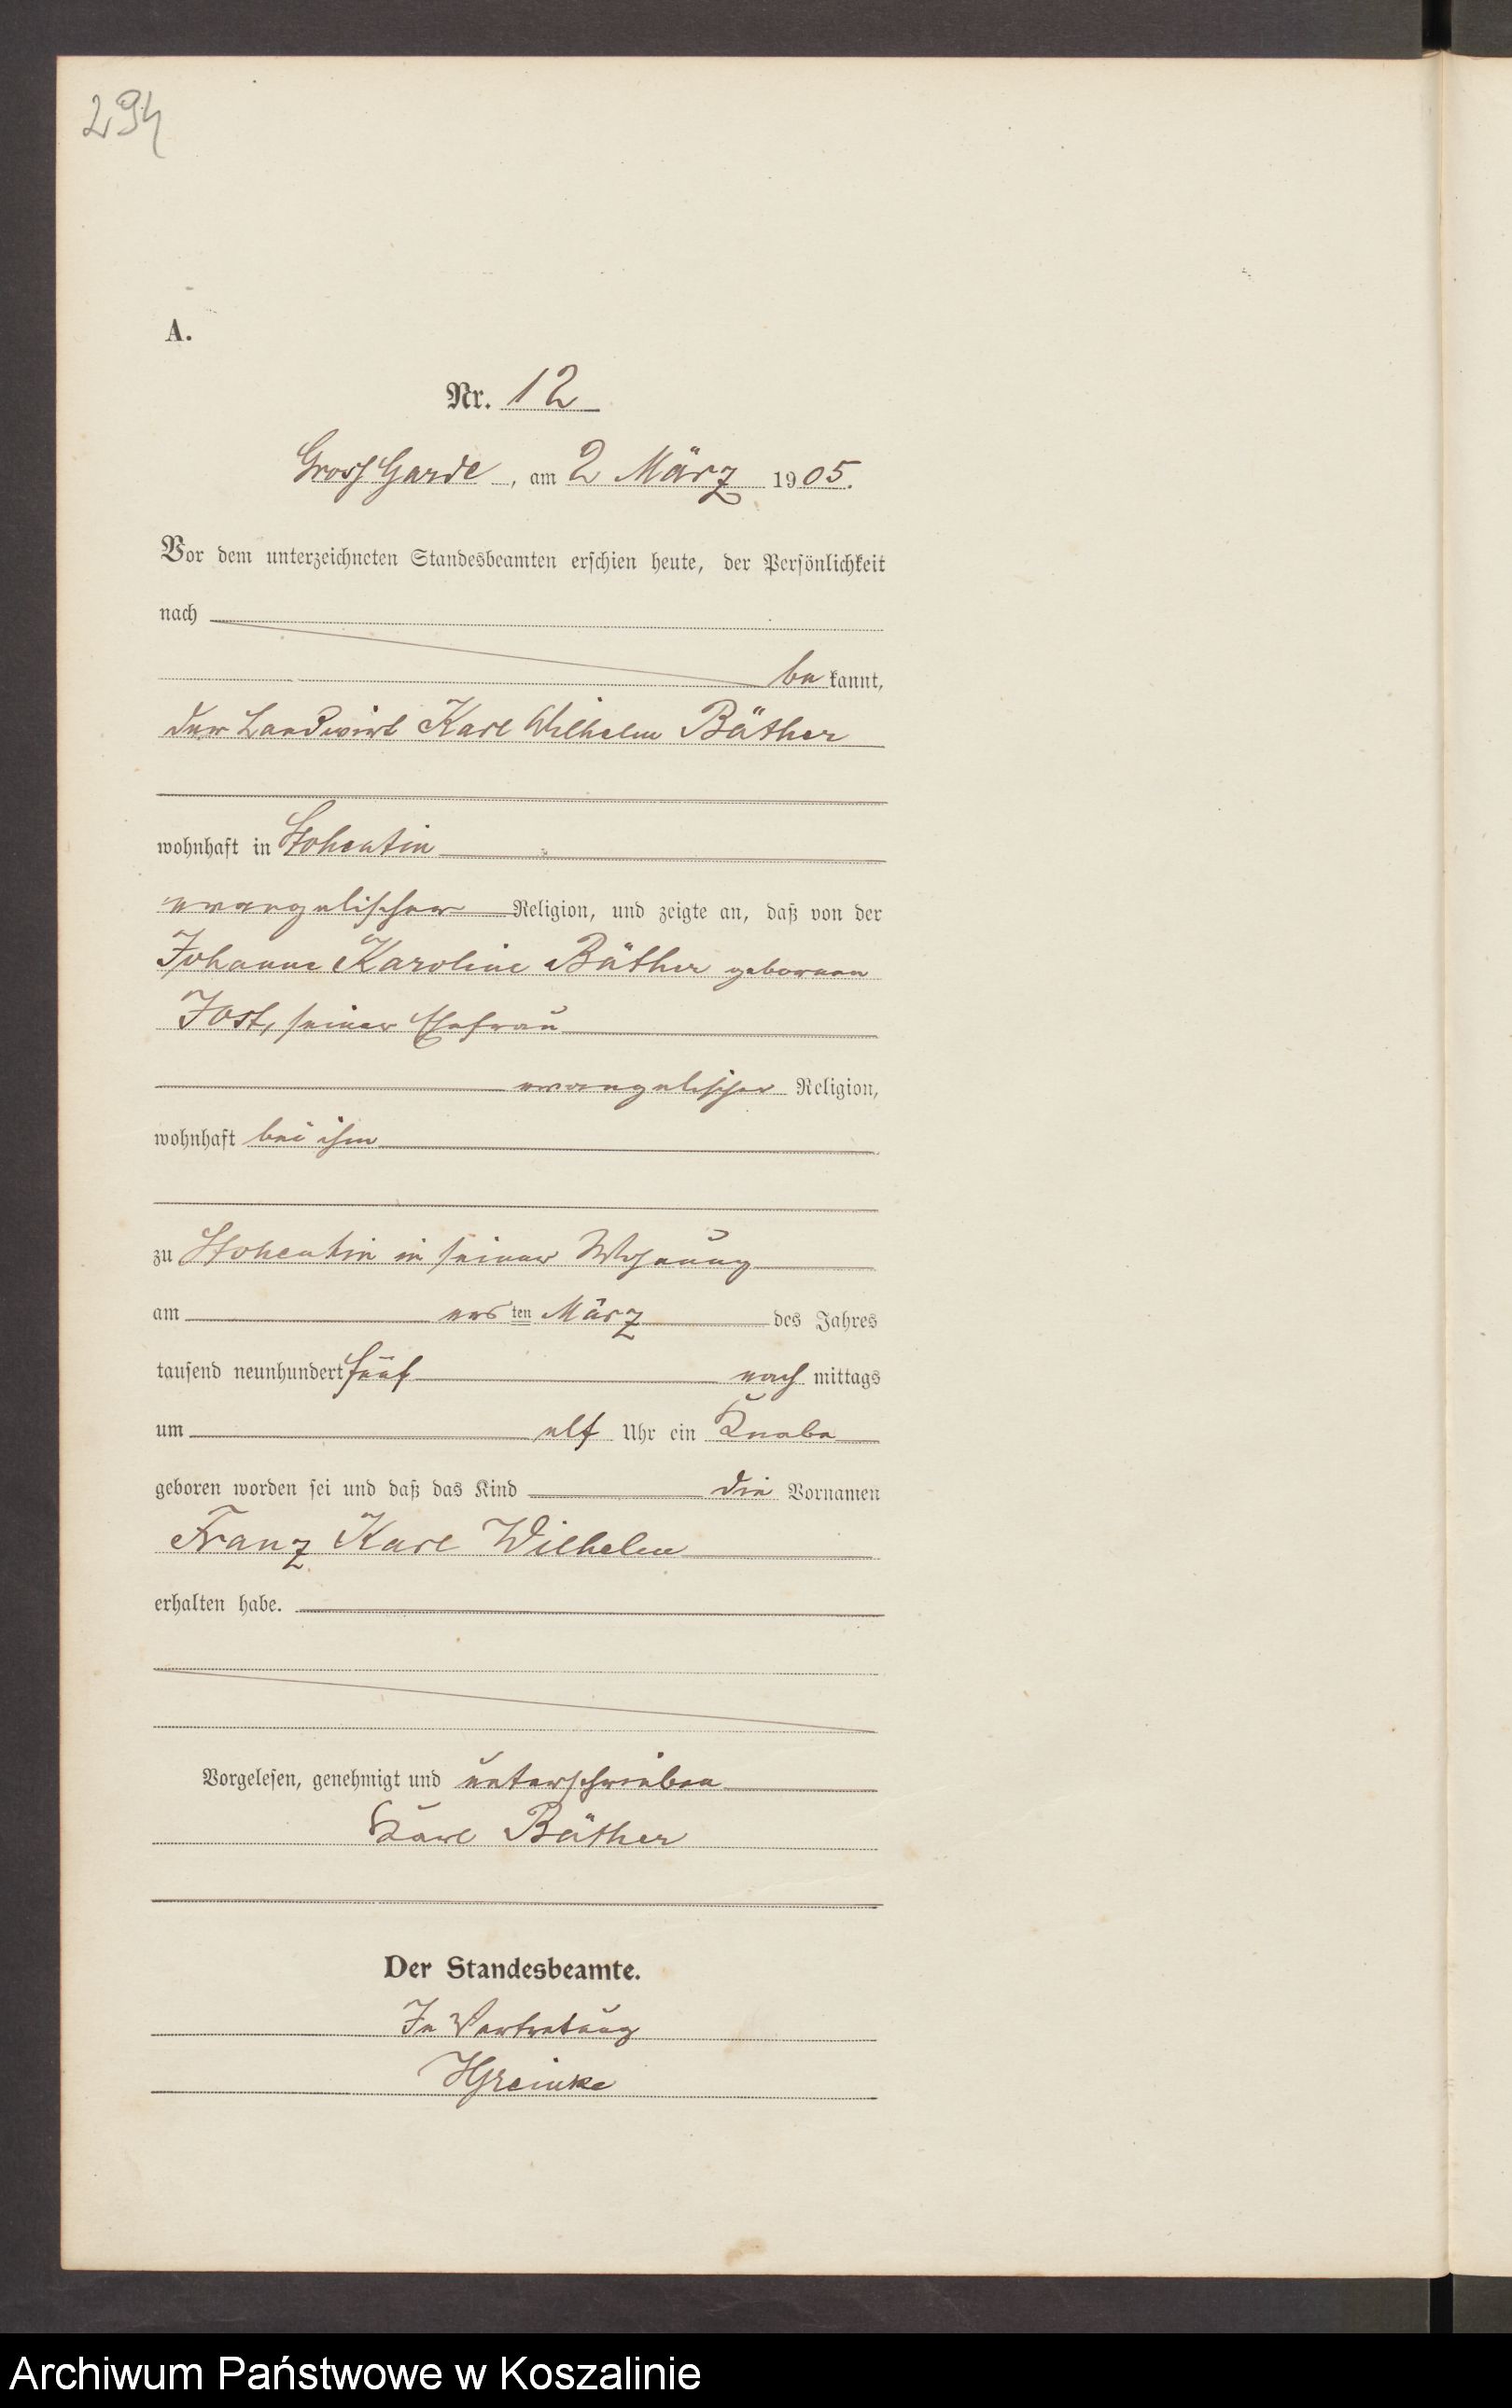 294
A.
Nr. 12
Gross Garde, am 2 März 1905.
Vor dem unterzeichneten Standesbeamten erschien heute, der Persönlichkeit
nach
be kannt,
der Landwirt Karl Wilhelm Bäther
wohnhaft in Stohentin
evangelischer Religion, und zeigte an, daß von der
Johanne Karoline Bäther geborenen
Jost, seiner Ehefrau
evangelischer Religion,
wohnhaft bei ihm
zu Stohentin in seiner Wohnung
am ersten März des Jahres
tausend neunhundert fünf nach mittags
um elf Uhr ein Knabe
geboren worden sei und daß das Kind die Vornamen
Franz Karl Wilhelm
erhalten habe.
Vorgelesen, genehmigt und unterschrieben
Karl Bäther
Der Standesbeamte.
In Vertretung
HGreinke
Archiwum Państwowe w Koszalinie